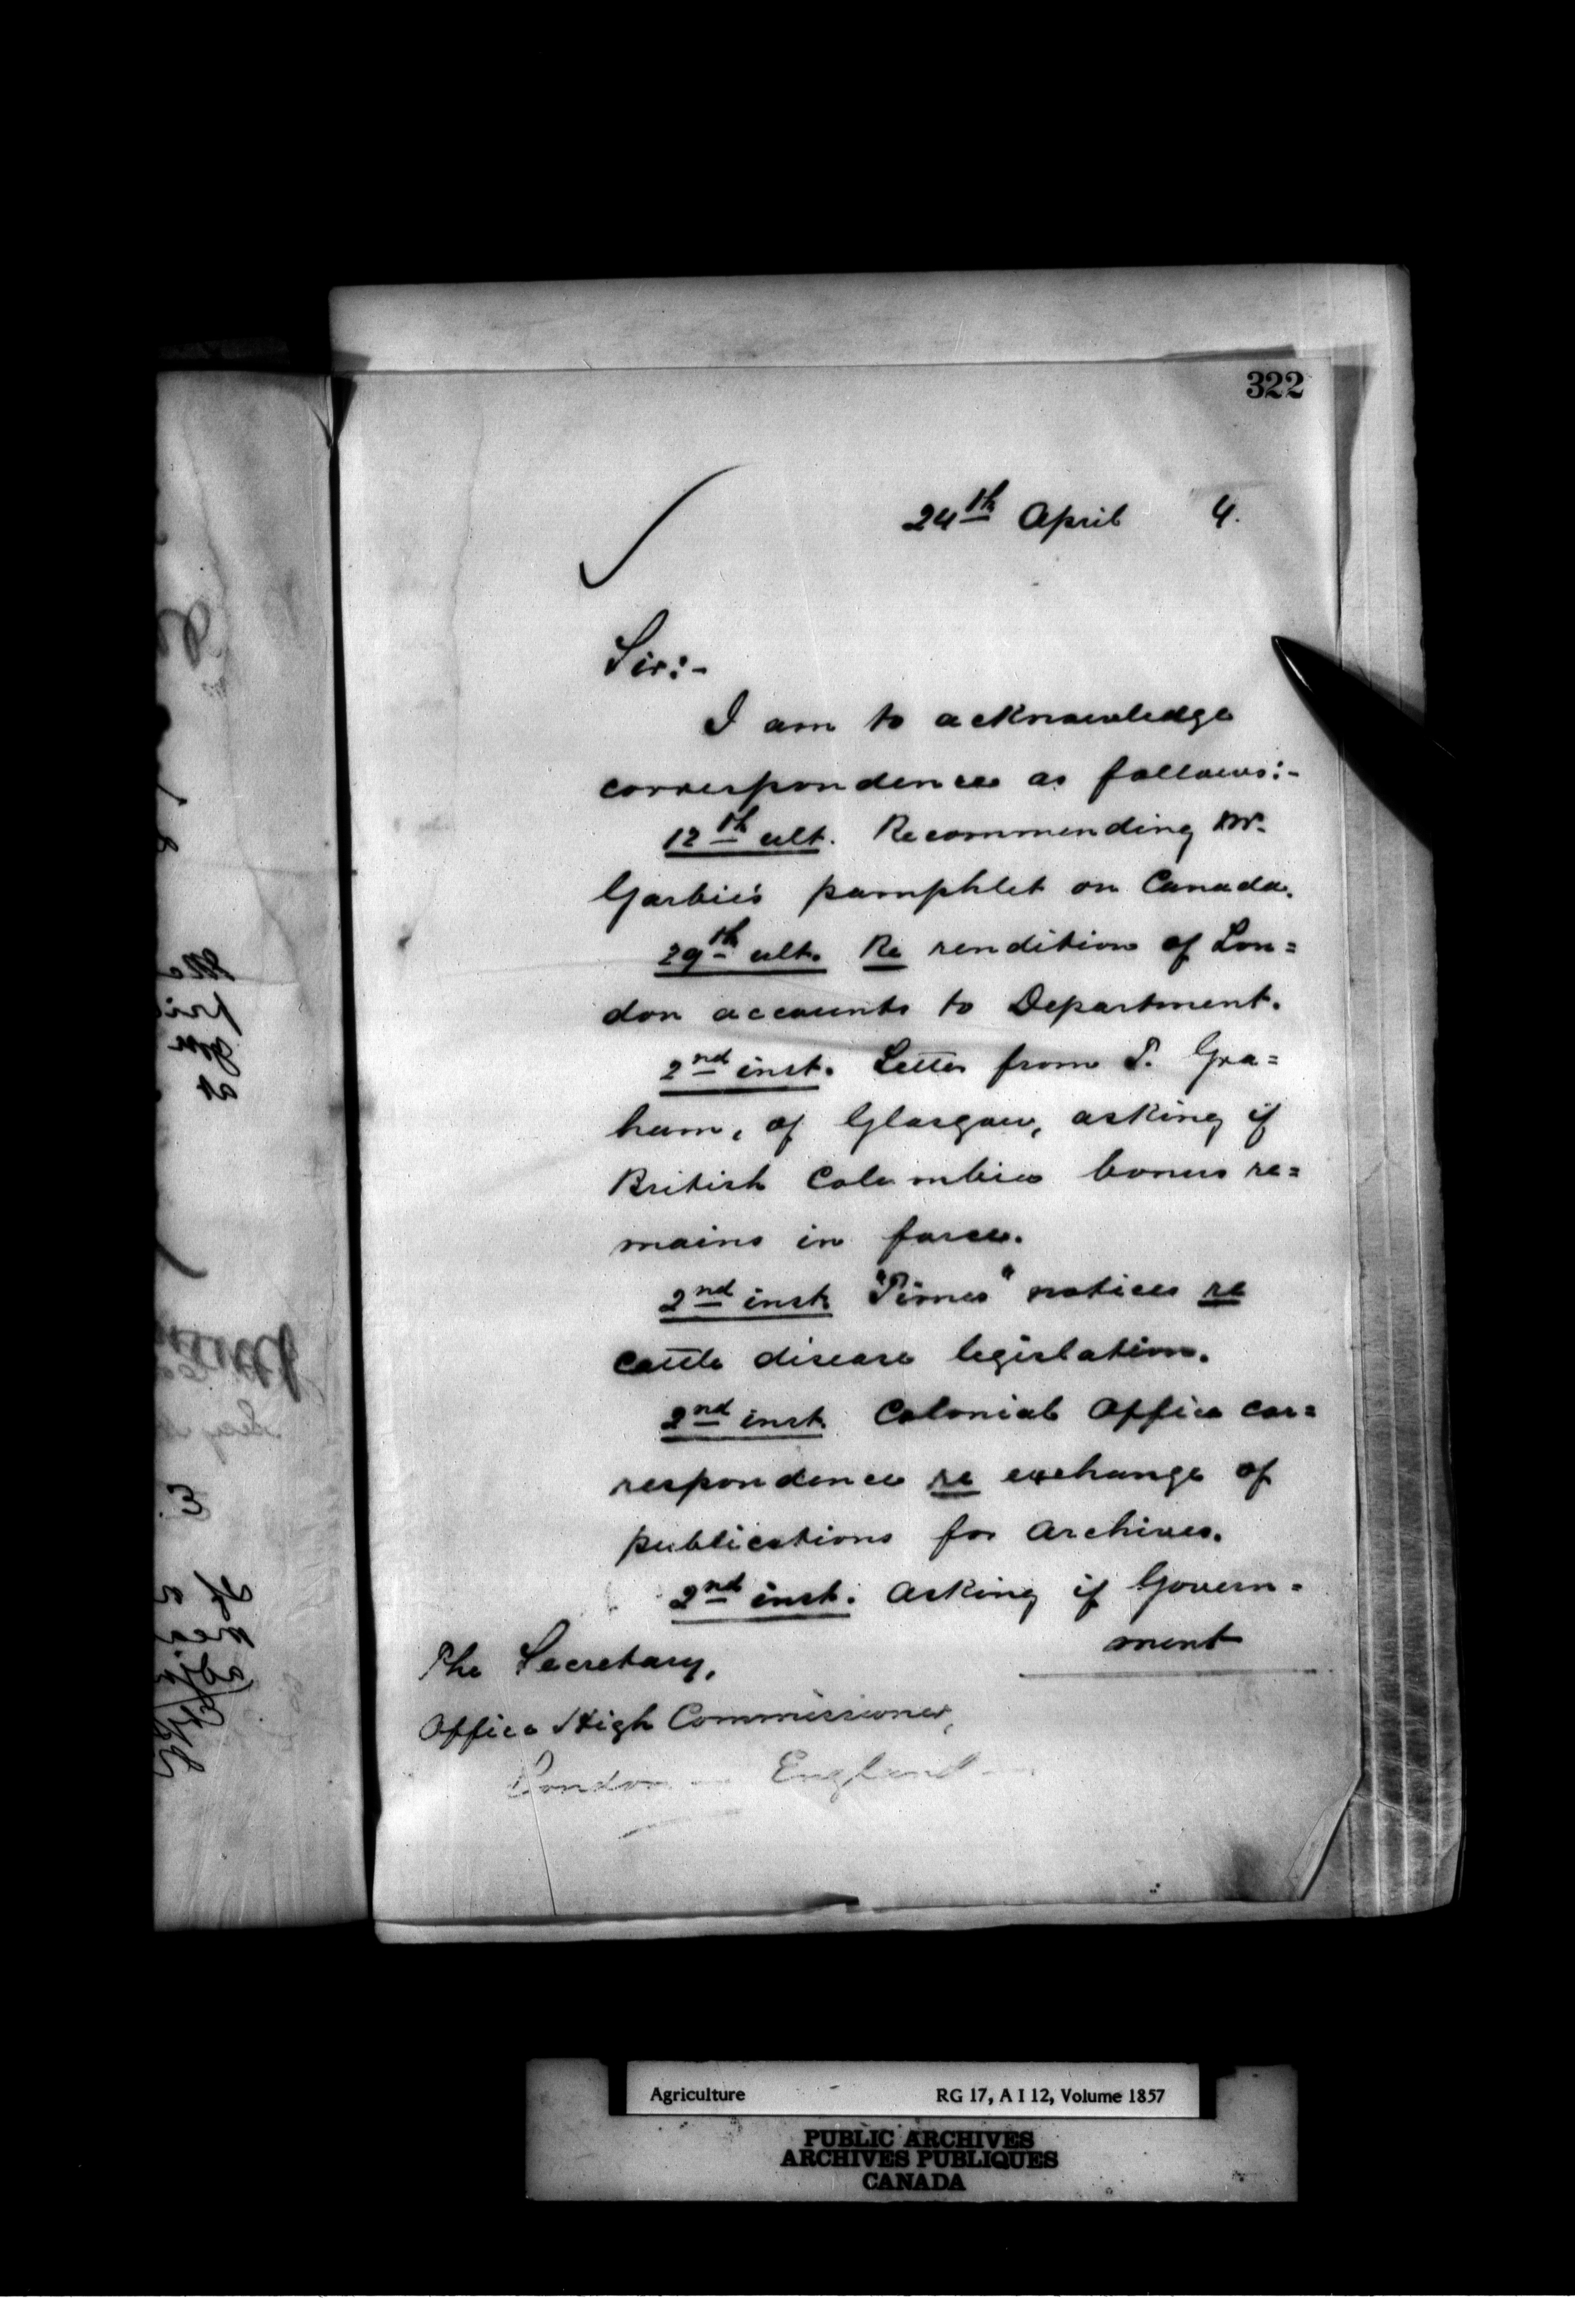 322
24th April 4.
Sir:-
I am to acknowledge
correspondence as follows:-
12th ult. Recommending Mr.
Garbie's pamphlet on Canada.
29th ult. Re rendition of Lon=
don accounts to Department.
2nd inst. Letter from T. Gra=
ham, of Glasgow, asking if
British Columbia bonus re=
mains in force.
2nd inst. "Times" notices re
Cattle disease legislation.
2nd inst. Colonial Office cor=
respondence re exchange of
publications for Archives.
2nd inst. Asking if Govern=
ment
The Secretary,
Office High Commissioner,
London - England -
Agriculture RG 17, A I 12, Volume 1857
PUBLIC ARCHIVES
ARCHIVES PUBLIQUES
CANADA